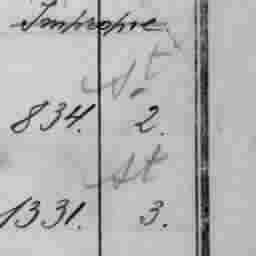 Impropre
St
834. 2.
St
1331. 3.